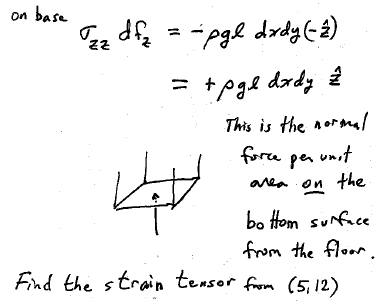 on base
σ_zz df_z = -ρgl dxdy(-ẑ)
= +ρgl dxdy ẑ
This is the normal
force per unit
area on the
bottom surface
from the floor.
Find the strain tensor from (5,12)